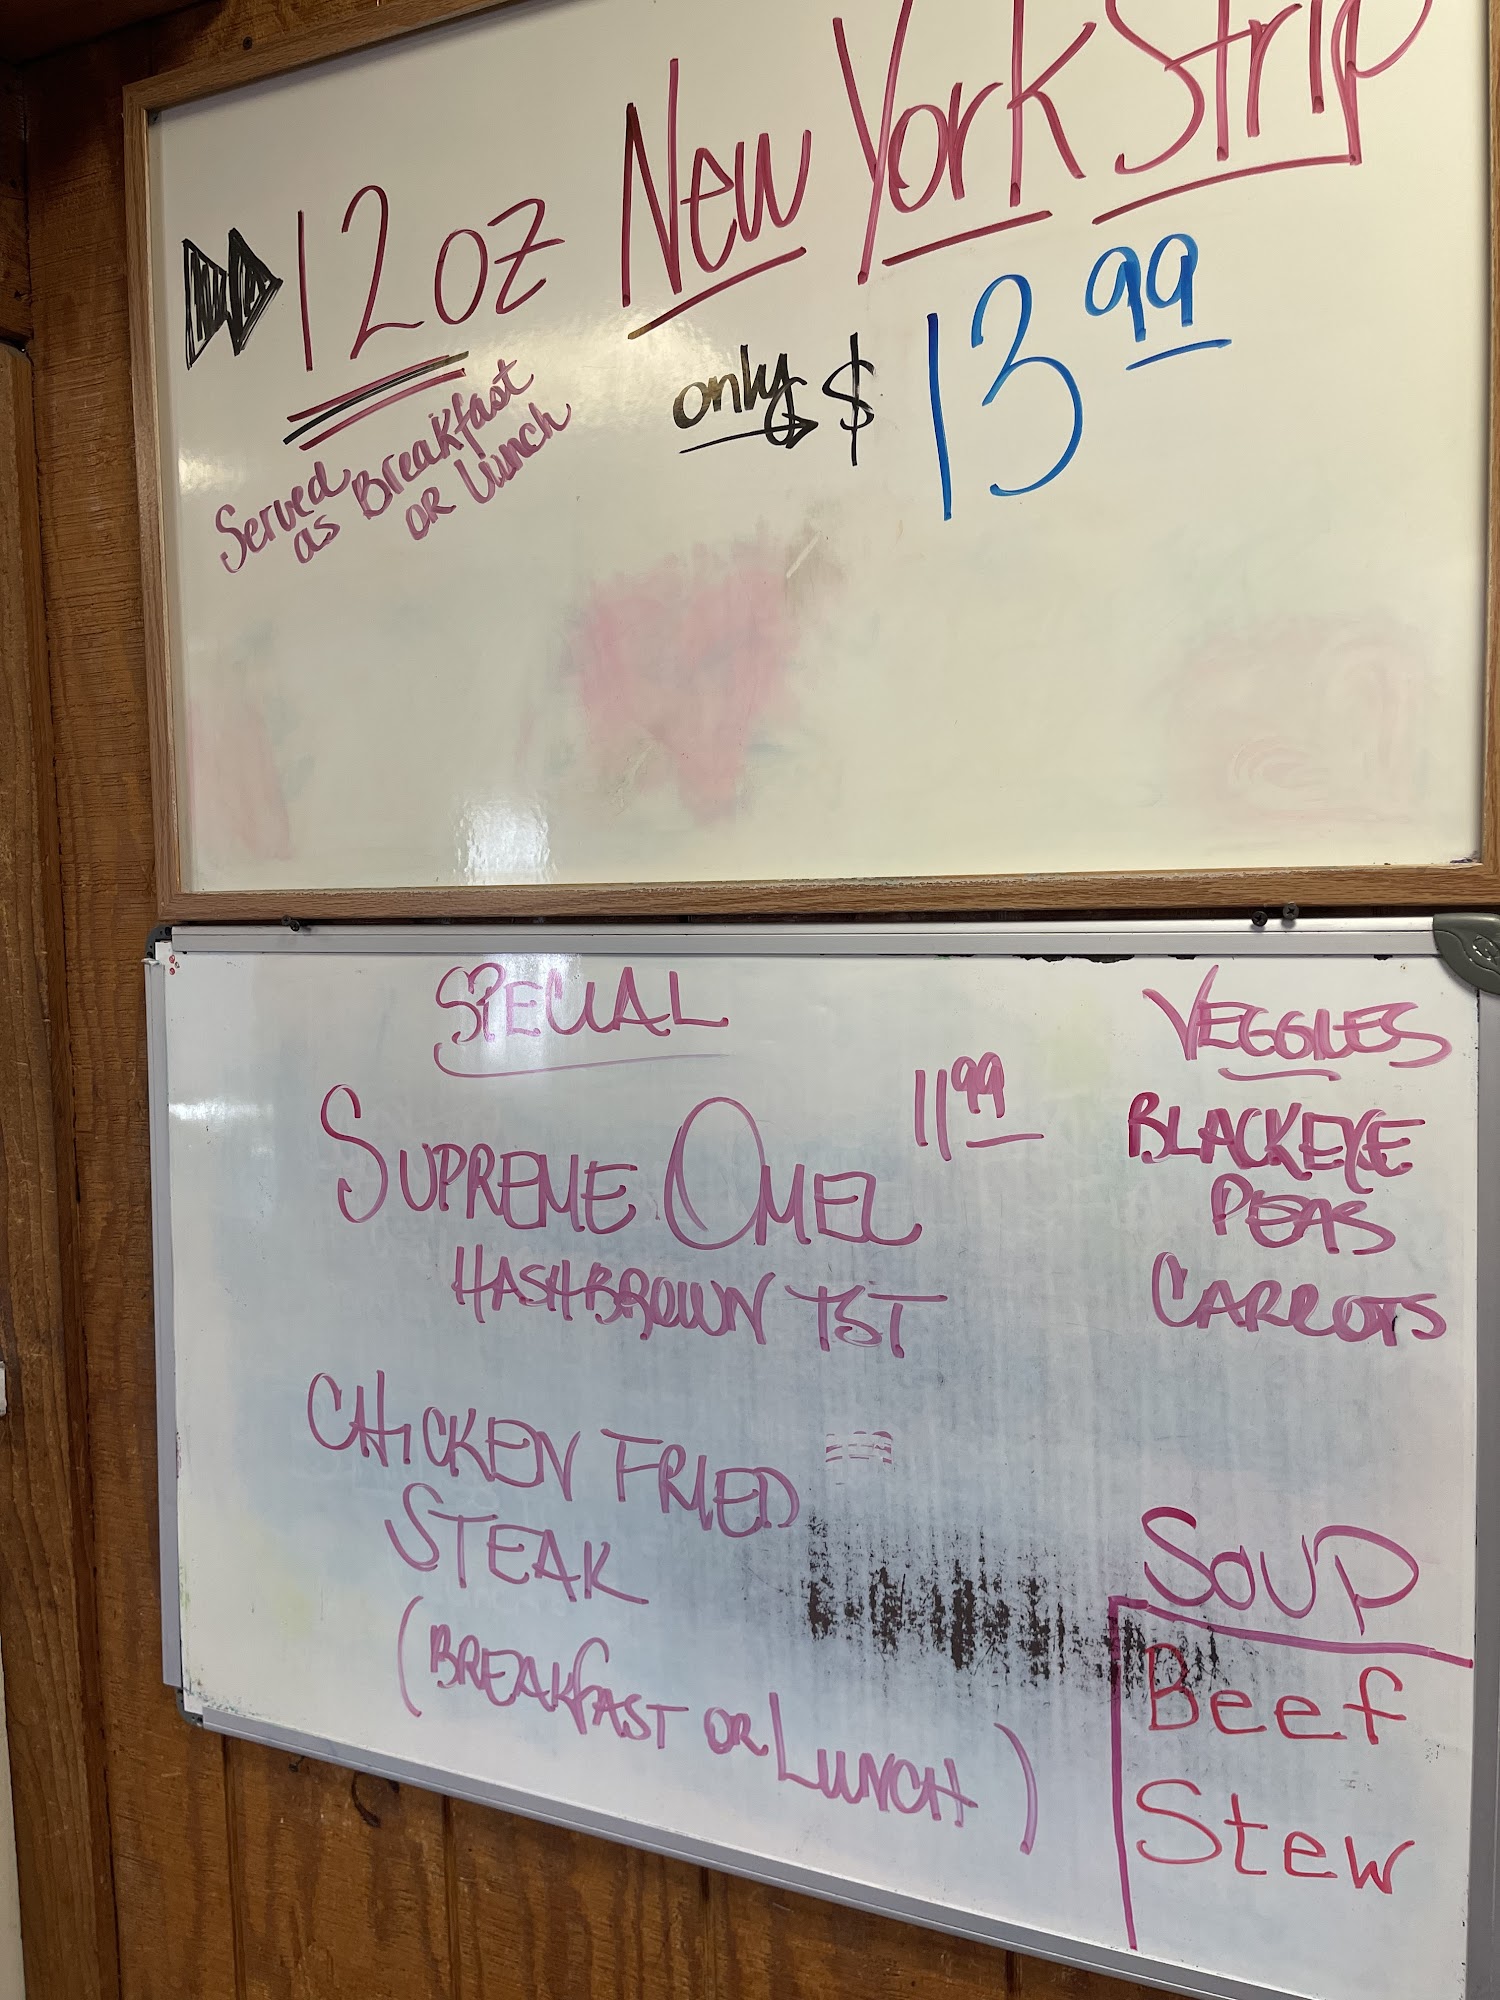 12 oz New York Strip
only $ 13.99
Served
as Breakfast
or Lunch
SPECIAL
SUPREME OMEL 11.99
HASHBROWN TST
CHICKEN FRIED
STEAK
(BREAKFAST OR LUNCH)
VEGGIES
BLACKEYE
PEAS
CARROTS
SOUP
Beef
Stew